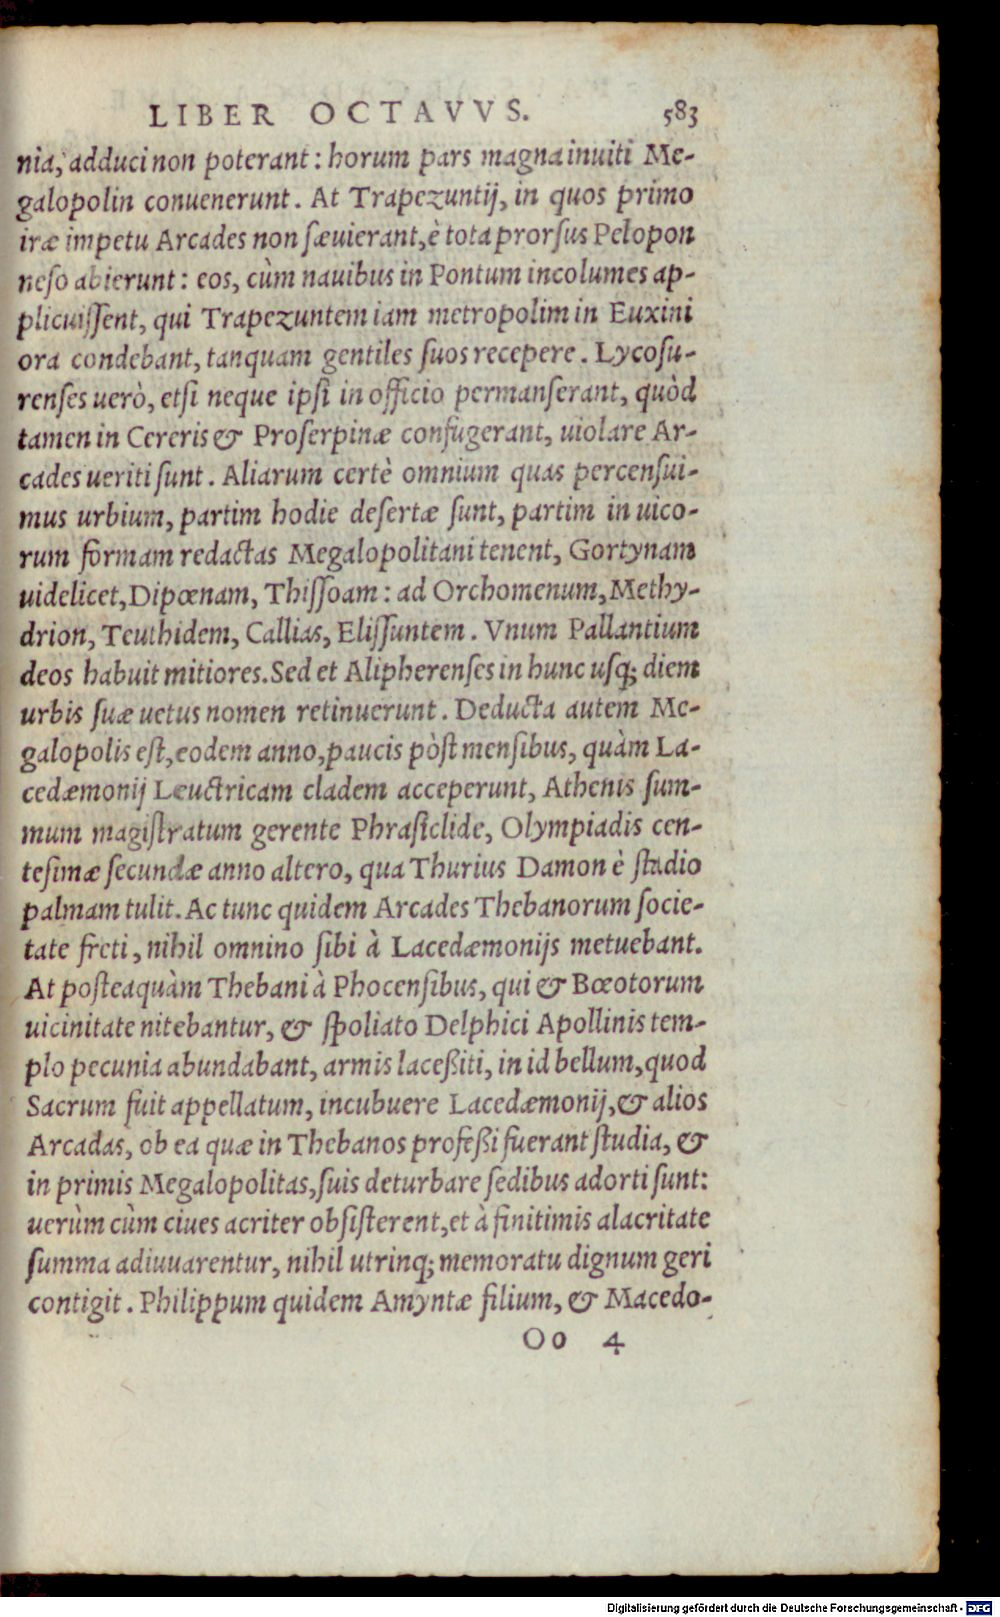 LIBER OCTAVVS. 583
nia, adduci non poterant: horum pars magna inuiti Me-
galopolin conuenerunt. At Trapezuntij, in quos primo
iræ impetu Arcades non sæuierant, è tota prorsus Pelopon
neso abierunt: eos, cùm nauibus in Pontum incolumes ap-
plicuissent, qui Trapezuntem iam metropolim in Euxini
ora condebant, tanquam gentiles suos recepere. Lycosu-
renses uerò, etsi neque ipsi in officio permanserant, quòd
tamen in Cereris & Proserpinæ confugerant, uiolare Ar-
cades ueriti sunt. Aliarum certè omnium quas percensui-
mus urbium, partim hodie desertæ sunt, partim in uico-
rum formam redactas Megalopolitani tenent, Gortynam
uidelicet, Dipœnam, Thissoam: ad Orchomenum, Methy-
drion, Teuthidem, Callias, Elissuntem. Vnum Pallantium
deos habuit mitiores. Sed et Alipherenses in hunc usq; diem
urbis suæ uetus nomen retinuerunt. Deducta autem Me-
galopolis est, eodem anno, paucis pòst mensibus, quàm La-
cedæmonij Leuctricam cladem acceperunt, Athenis sum-
mum magistratum gerente Phrasiclide, Olympiadis cen-
tesimæ secundæ anno altero, qua Thurius Damon è stadio
palmam tulit. Ac tunc quidem Arcades Thebanorum socie-
tate freti, nihil omnino sibi à Lacedæmonijs metuebant.
At posteaquàm Thebani à Phocensibus, qui & Bœotorum
uicinitate nitebantur, & spoliato Delphici Apollinis tem-
plo pecunia abundabant, armis laceßiti, in id bellum, quod
Sacrum fuit appellatum, incubuere Lacedæmonij, & alios
Arcadas, ob ea quæ in Thebanos profeßi fuerant studia, &
in primis Megalopolitas, suis deturbare sedibus adorti sunt:
uerùm cùm ciues acriter obsisterent, et à finitimis alacritate
summa adiuuarentur, nihil utrinq; memoratu dignum geri
contigit. Philippum quidem Amyntæ filium, & Macedo-
Oo 4
Digitalisierung gefördert durch die Deutsche Forschungsgemeinschaft - DFG